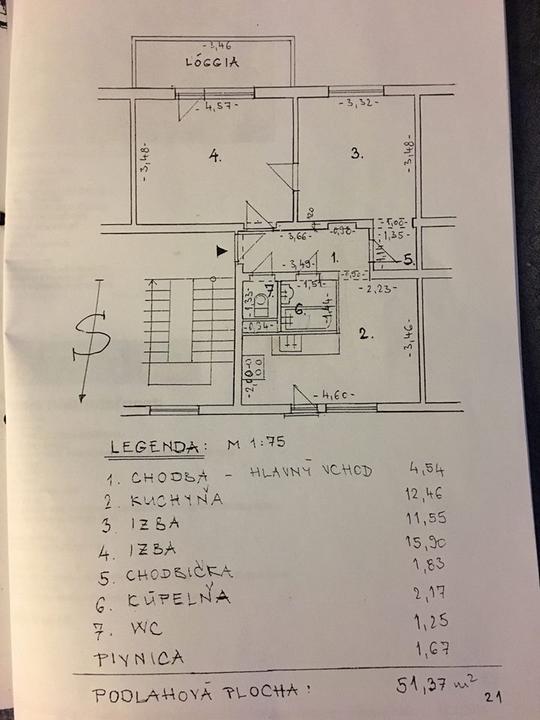 -3,46-
LÓGGIA
-4,57-
-3,32-
-3,48-
4.
3.
-3,48-
120
-1,00-
-3,66-
-0,98-
-1,35-
1.
5.
-3,49-
-1,50-
7.
-1,51-
-2,23-
-1,35-
6.
-1,44-
-0,94-
2.
-3,46-
-2,00-
-4,60-
S
LEGENDA: M 1:75
1. CHODBA - HLAVNÝ VCHOD 4,54
2. KUCHYŇA 12,46
3 IZBA 11,55
4. IZBA 15,90
5. CHODBIČKA 1,83
6. KÚPELŇA 2,17
7. WC 1,25
PIVNICA 1,67
PODLAHOVÁ PLOCHA: 51,37 m²
21